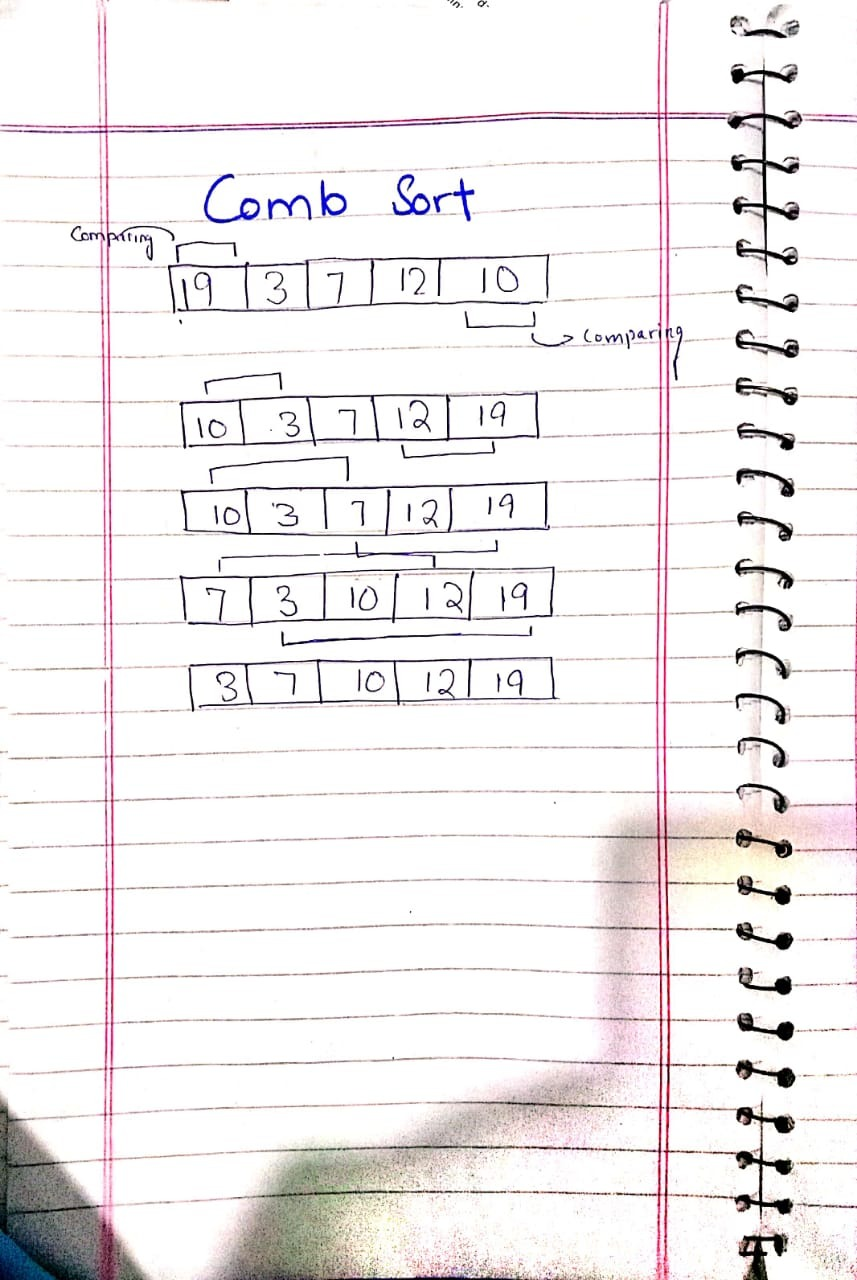 Comb Sort
Comparing
19 3 7 12 10
Comparing
10 3 7 12 19
10 3 7 12 19
7 3 10 12 19
3 7 10 12 19